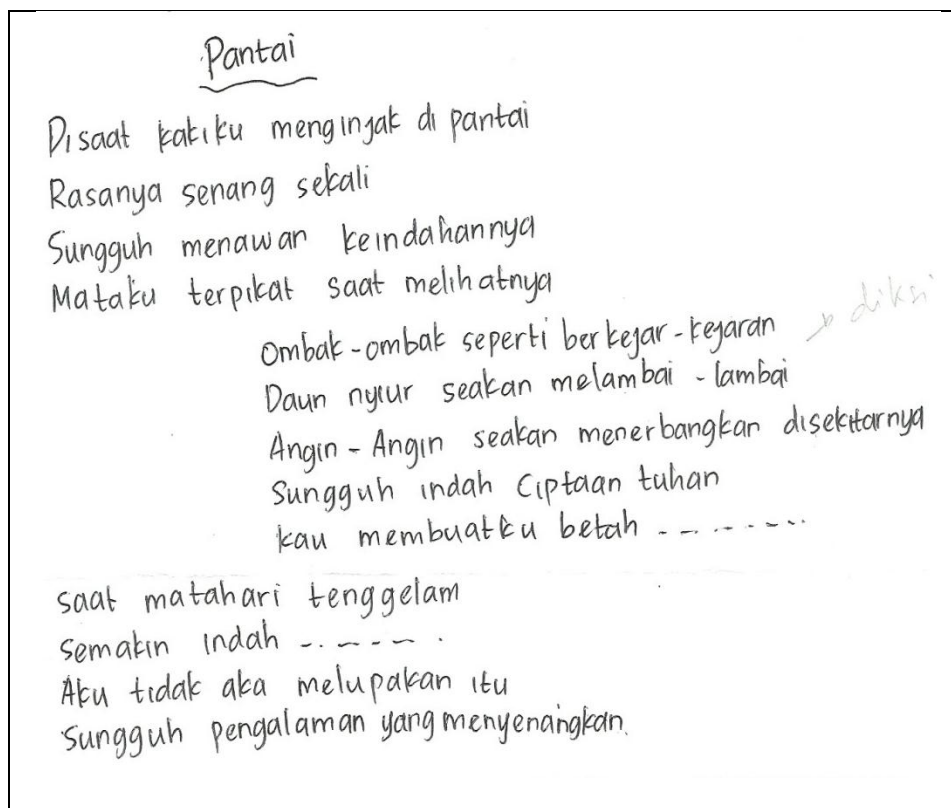 Pantai
Disaat kakiku menginjak di pantai
Rasanya senang sekali
Sungguh menawan keindahannya
Mataku terpikat saat melihatnya
Ombak-ombak seperti berkejar-kejaran → diksi
Daun nyiur seakan melambai - lambai
Angin - Angin seakan menerbangkan disekitarnya
Sungguh indah Ciptaan tuhan
kau membuatku betah .........
saat matahari tenggelam
semakin indah .......
Aku tidak aka melupakan itu
Sungguh pengalaman yang menyenangkan.